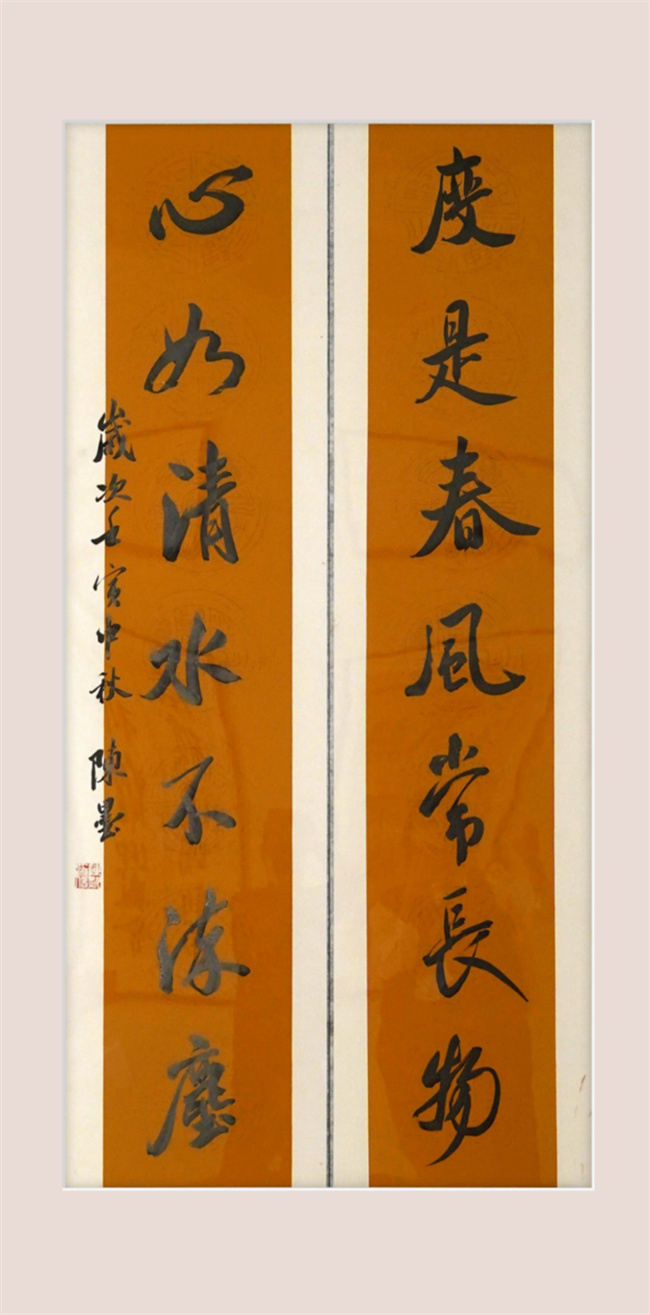 度是春風常長物
心如清水不染塵
歲次壬寅中秋 陳